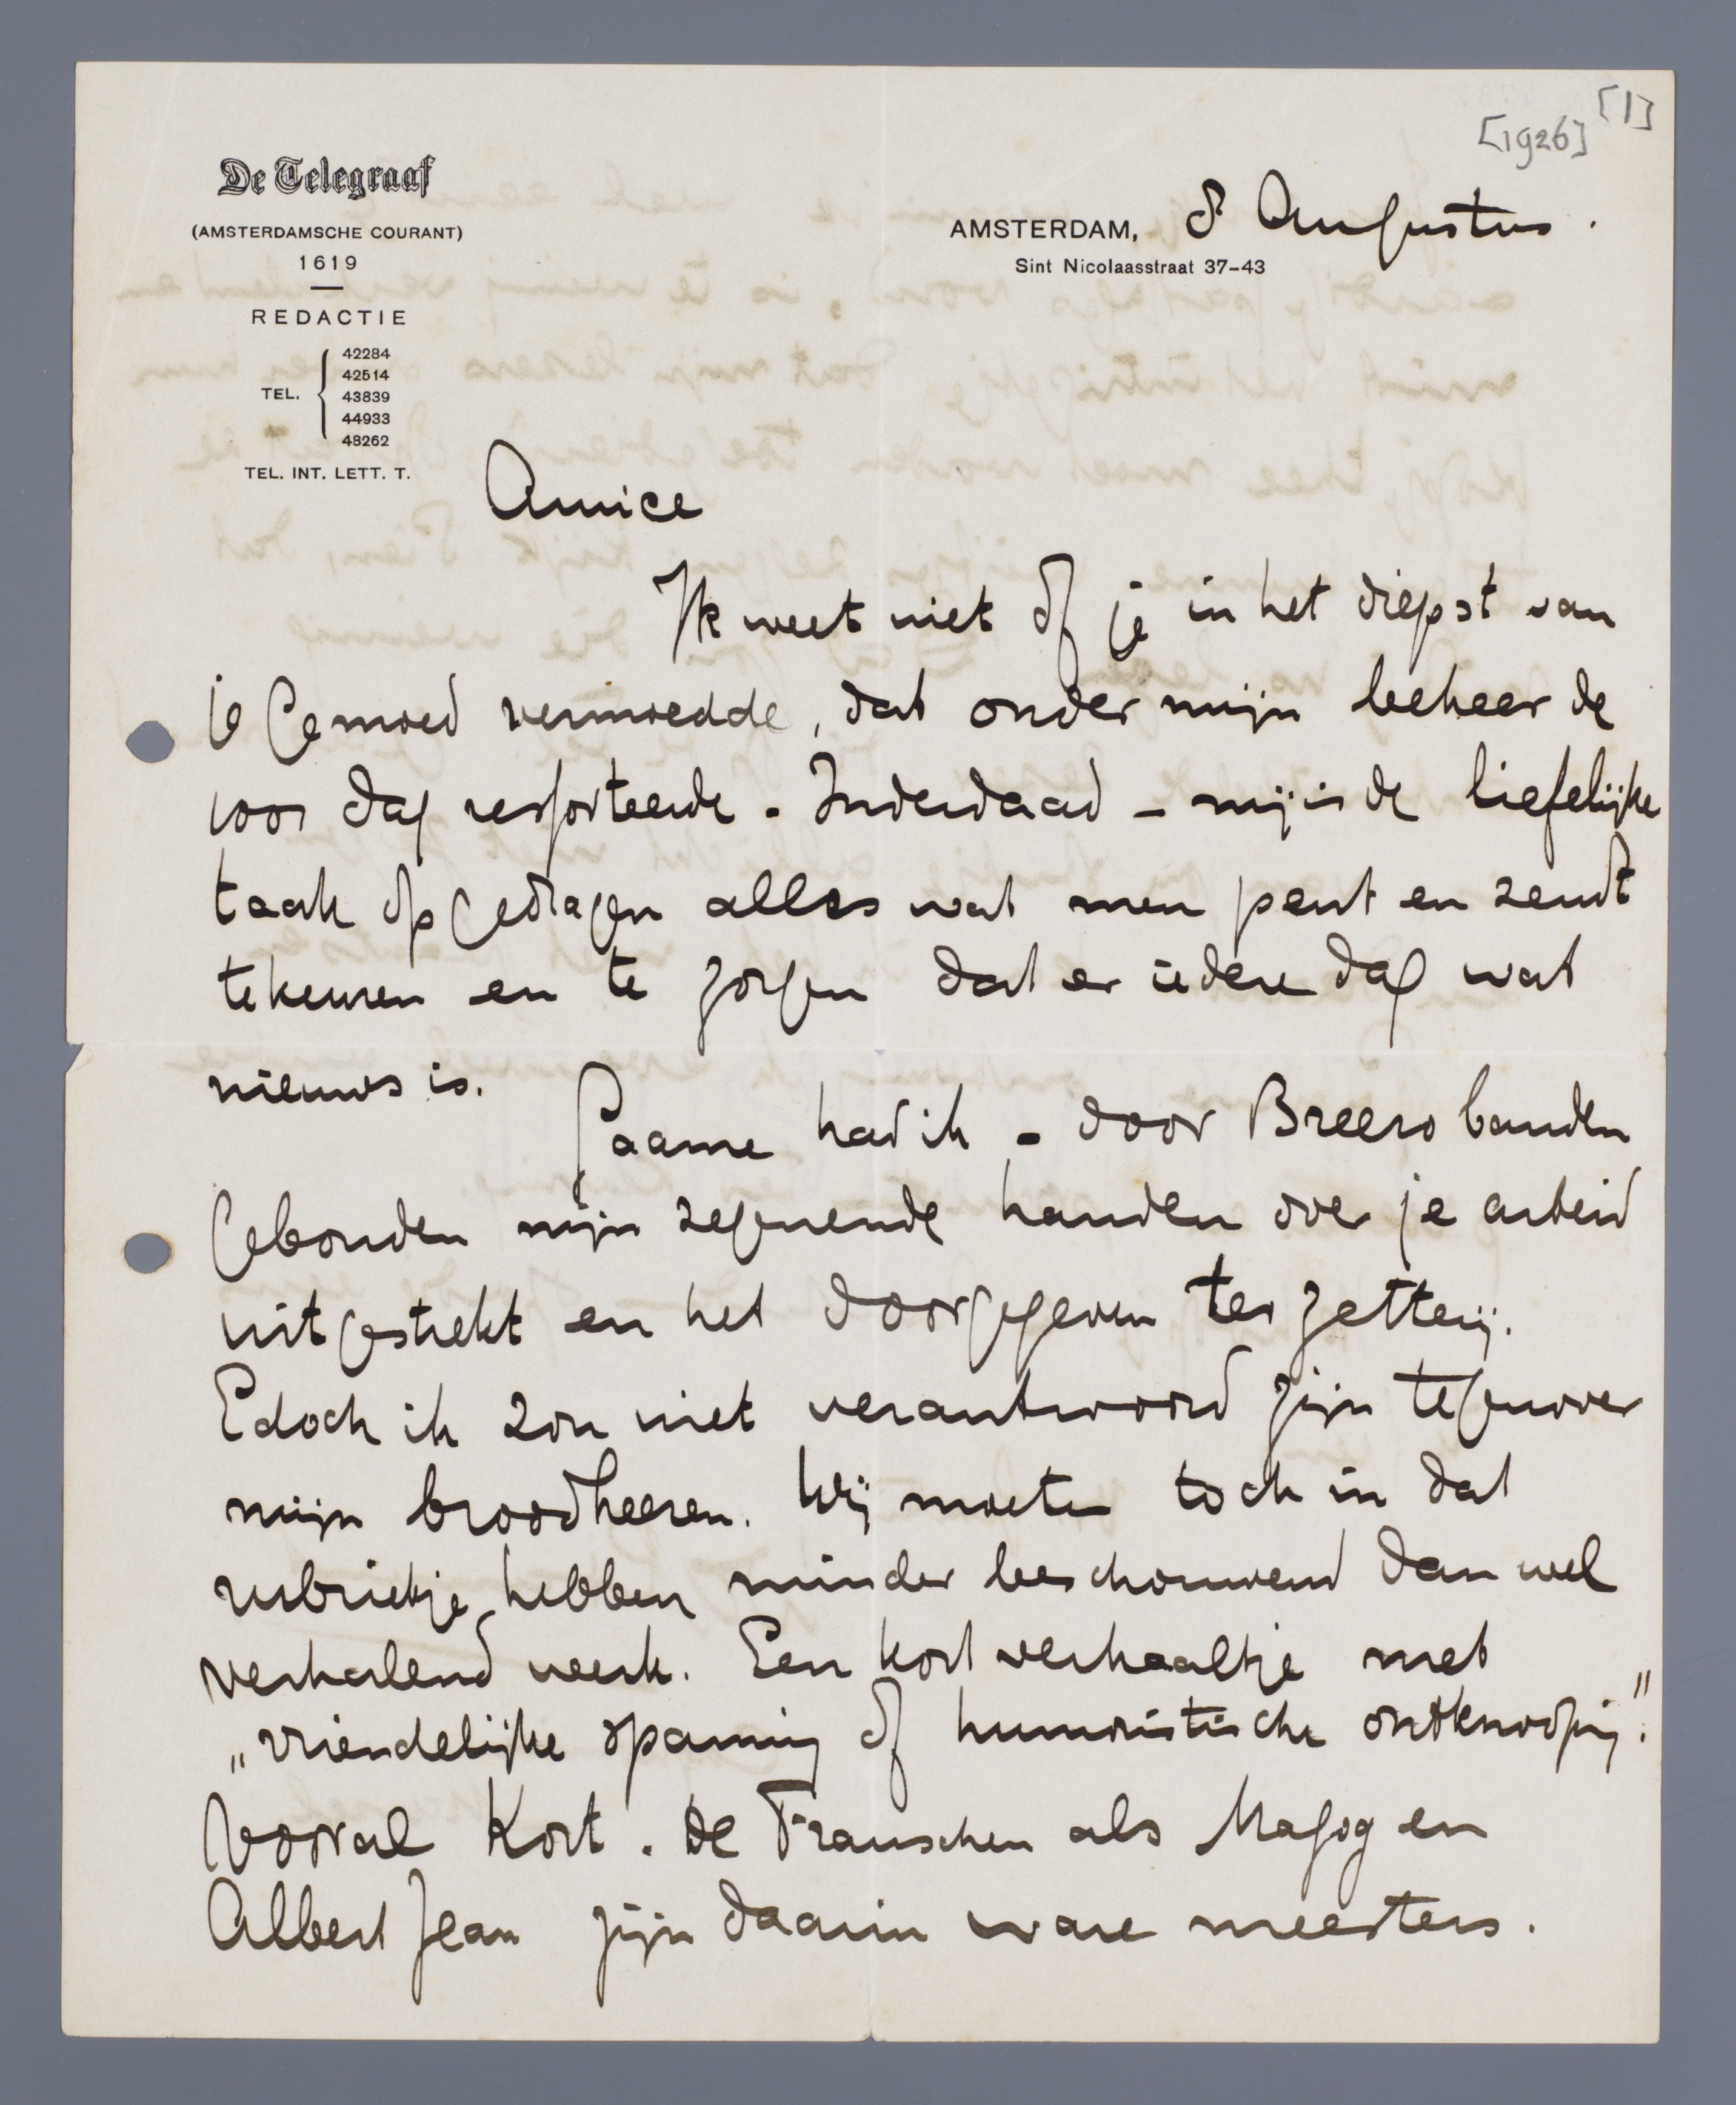 [1]
[1926]
De Telegraaf
(AMSTERDAMSCHE COURANT)
1619
REDACTIE
TEL.
42284
42514
43839
44933
48262
TEL. INT. LETT. T.
AMSTERDAM, 8 Augustus.
Sint Nicolaasstraat 37-43
Amice
Ik weet niet of je in het diepst van
je gemoed vermoedde, dat onder mijn beheer de
voor dag ressorteerde - Inderdaad - mij is de liefelijke
taak opgedragen alles wat men pent en zendt
te keuren en te zorgen dat er iedere dag wat
nieuws is.
Gaarne had ik - door Breero banden
gebonden mijn zegenende handen over je arbeid
uitgestrekt en het doorgegeven ter zetterij.
Edoch ik zou niet verantwoord zijn tegenover
mijn broodheeren. Wij moeten toch in dat
rubriekje hebben minder beschouwend dan wel
verhalend werk. Een kort verhaaltje met
„vriendelijke spanning of humoristische ontknooping".
Vooral kort. De Franschen als Magog en
Albert Jean zijn daarin ware meesters.